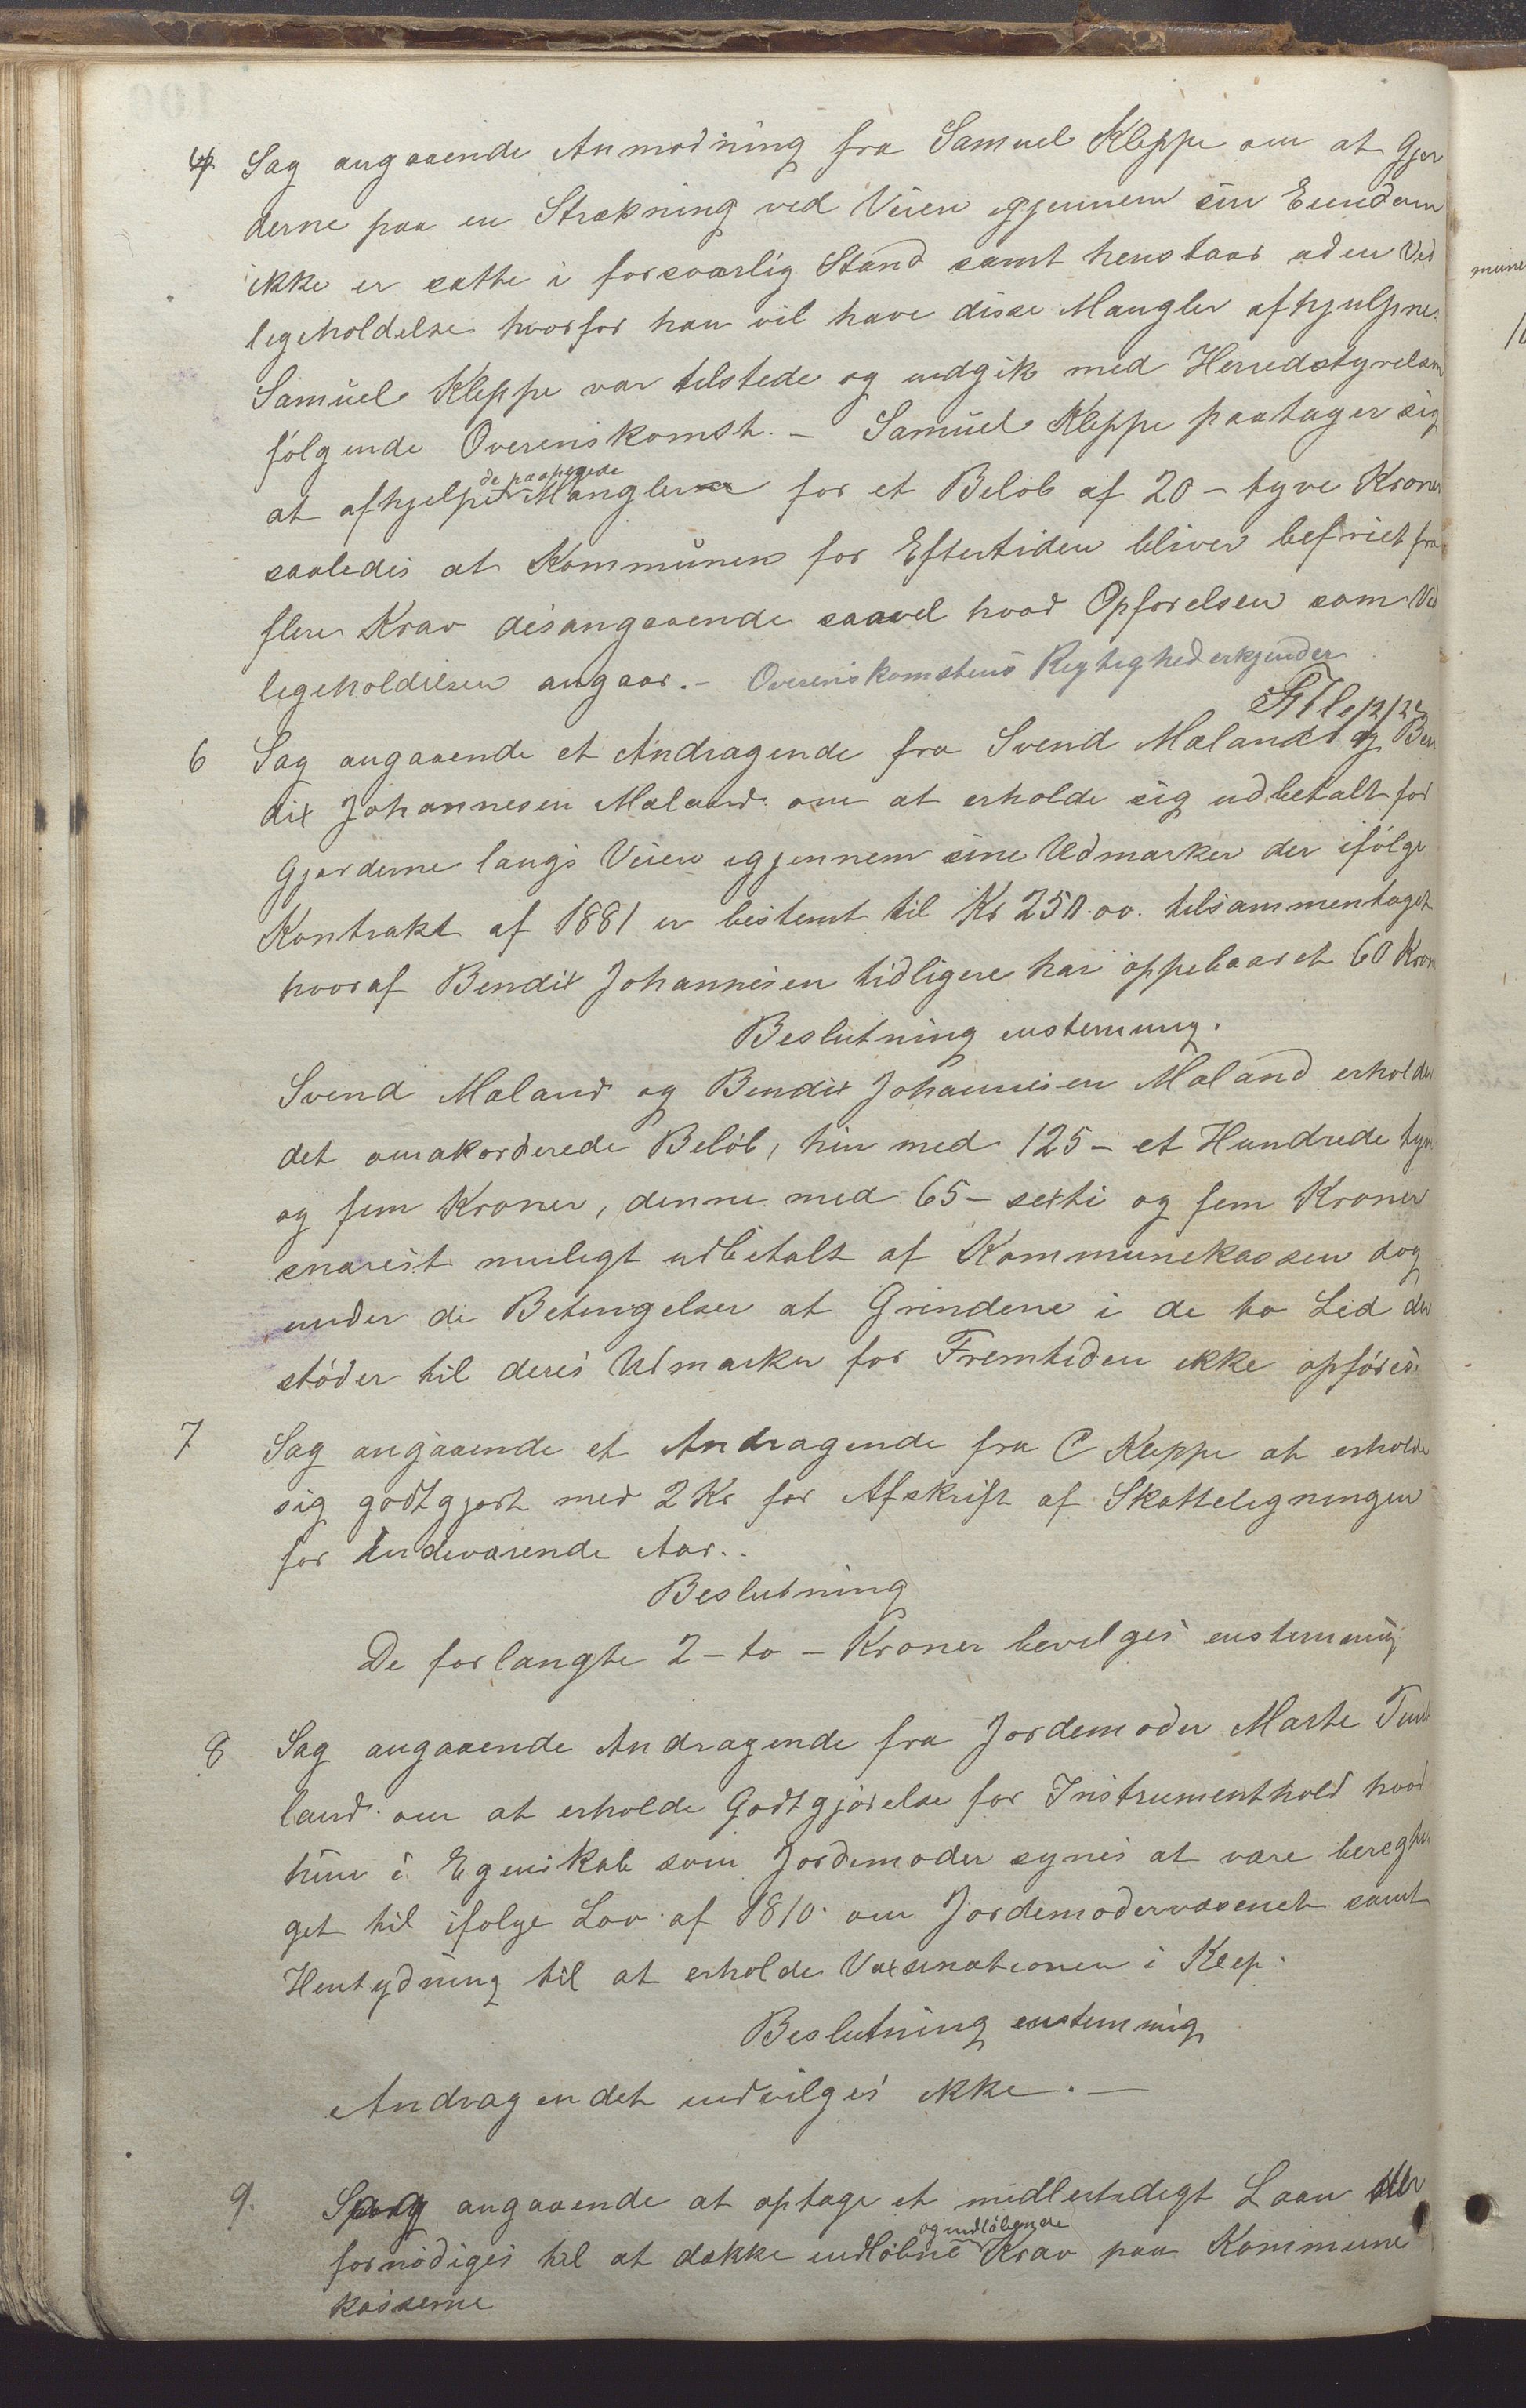 Sag angaaende Anmodning fra Samuel Kleppe om at Gjer
derne paa en Strækning ved Veien igjennem sin Eiendom
ikke er satte i forsvarlig Stand samt henstaar uden Ved
ligeholdelse hvorfor han vil have disse Mangler afhjulpne.
Samuel Kleppe var tilstede og indgik med Herredstyrelsen
følgende Overenskomst. – Samuel Kleppe paatager sig
de paapegede
at afhjelpe Mangler for et Beløb af 20 – tyve Kroner
saaledes at Kommunen for Eftertiden bliver befriet fra
flere Krav desangaaende saavel hvad Opførelsen som Ved
ligeholdelsen angaar. – Overenskomstens Rigtighed erkjender
Kleppe
6 Sag angaaende et Andragende fra Svend Maland og Ben
dix Johannesen Maland om at erholde sig udbetalt for
Gjerderne langs Veien igjennem sine Udmarker der ifølge
Kontrakt af 1881 er bestemt til Kr 250.00. tilsammentaget
hvoraf Bendix Johannesen tidligere har oppebaaret 60 Kron
Beslutning enstemmig.
Svend Maland og Bendix Johannesen Maland erholder
det omakorderede Beløb, hin med 125 – et Hundrede tyve
og fem Kroner, denne med 65 – sexti og fem Kroner
snarest muligt udbetalt af Kommunekassen dog
under de Betingelser at Grindene i de to Led der
støder til deres Udmarker for Fremtiden ikke opføres.
7 Sag angaaende et Andragende fra C Kleppe at erholde
sig godtgjort med 2 Kr for Afskrift af Skatteligningen
for indeværende Aar..
Beslutning
De forlangte 2 – to – Kroner bevilges enstemmig
8 Sag angaaende Andragende fra Jordemoder Marte Tun
land om at erholde Godtgjørelse for Instrumenthold hvad
hun i Egenskab som Jordemoder synes at være beregti
get til ifølge Lov af 1810 om Jordemodervæsenet samt
Hentydning til at erholde Vaxsinationen i Klep.
Beslutning enstemmig
Andragendet indvilges ikke. –
9. Sag angaaende at optage et midlertidigt Laan der
og indløbende
fornødiges til at dække indløbne Krav paa Kommune
kasserne
mine